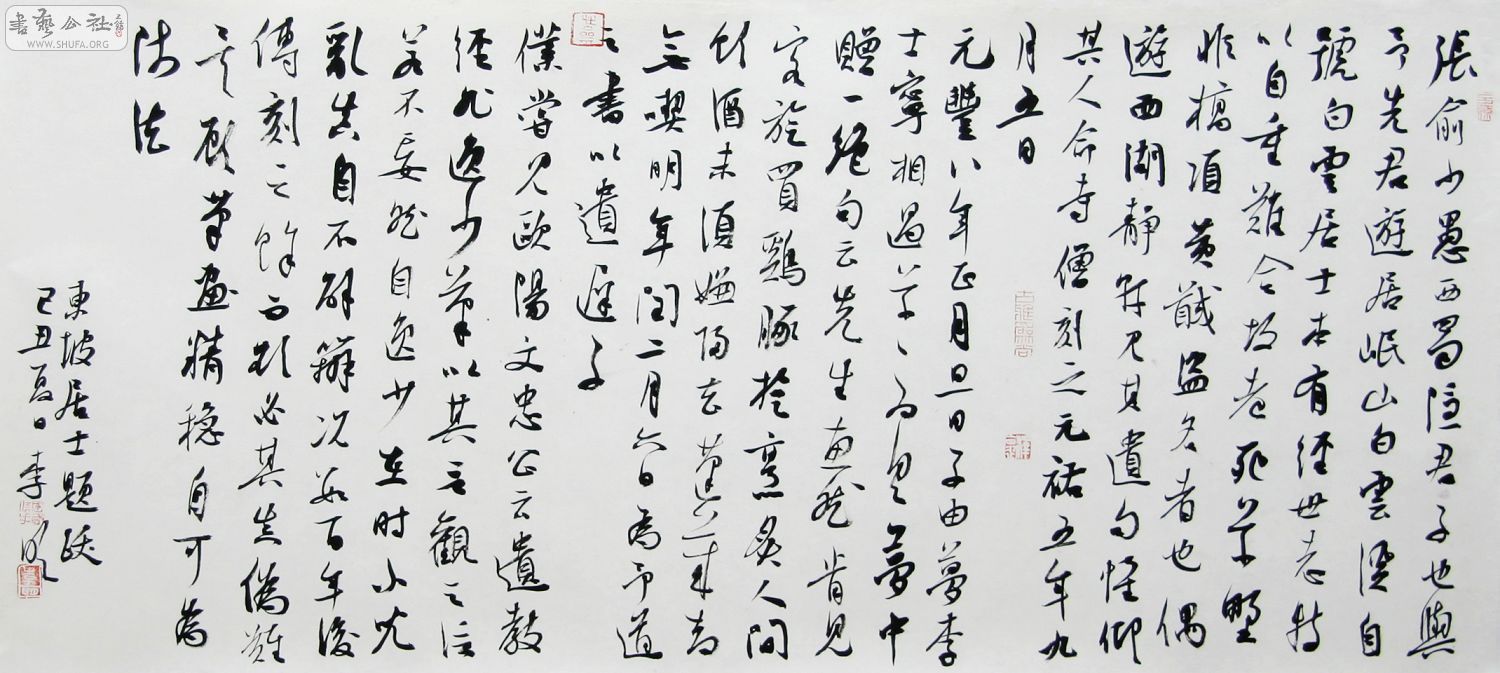 張俞少愚西蜀隱君子也與
予先君遊居岷山白雲溪自
號白雲居士本有經世志特
以自重難合故老死草野
非槁項黃馘盜名者也偶
遊西湖靜慈見其遺句悵仰
其人命寺僧刻之元祐五年九
月五日
元豐八年正月旦日子由夢李
士寧相過草草為具夢中
贈一絕句云先生惠然肯見
客旋買雞豚旋烹炙人間
飲酒未須嫌歸去蓬萊卻
無喫明年閏二月六日為予道
之書以遺遲子
僕嘗見歐陽文忠公云遺教
經非逸少筆以其言觀之信
若不妄然自逸少在時小兒
亂真自不解辨況數百年後
傳刻之餘而欲必其真偽難
矣顧筆畫精穩自可為
師法
東坡居士題跋
己丑夏日李
書藝公社
WWW.SHUFA.ORG